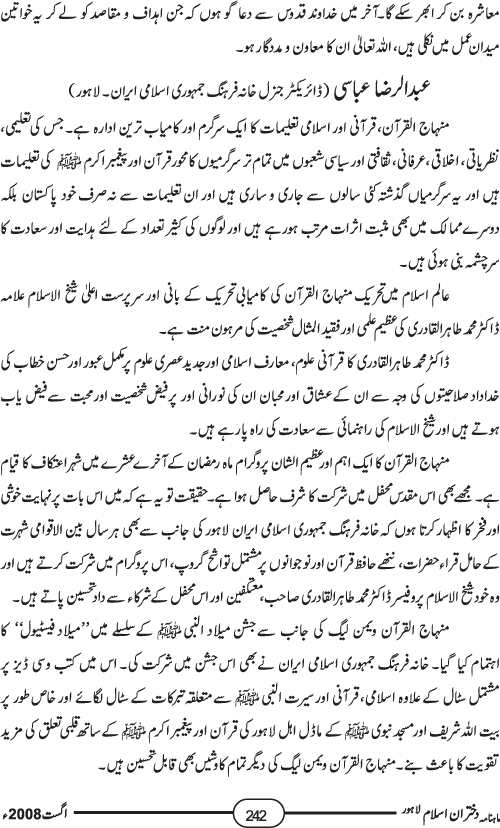 معاشرہ بن کر ابھر سکے گا۔ آخر میں خداوند قدوس سے دعا گو ہوں کہ جن اہداف و مقاصد کو لے کر یہ خواتین
میدان عمل میں نکلی ہیں، اللہ تعالیٰ ان کا معاون و مددگار ہو۔
عبدالرضا عباسی (ڈائریکٹر جنرل خانہ فرہنگ جمہوری اسلامی ایران۔ لاہور)
منہاج القرآن، قرآنی اور اسلامی تعلیمات کا ایک سرگرم اور کامیاب ترین ادارہ ہے۔ جس کی تعلیمی،
نظریاتی، اخلاقی، عرفانی، ثقافتی اور سیاسی شعبوں میں تمام تر سرگرمیوں کا محور قرآن اور پیغمبر اکرم ﷺ کی تعلیمات
ہیں اور یہ سرگرمیاں گذشتہ کئی سالوں سے جاری و ساری ہیں اور ان تعلیمات سے نہ صرف خود پاکستان بلکہ
دوسرے ممالک میں بھی مثبت اثرات مرتب ہورہے ہیں اور لوگوں کی کثیر تعداد کے لئے ہدایت اور سعادت کا
سرچشمہ بنی ہوئی ہیں۔
عالم اسلام میں تحریک منہاج القرآن کی کامیابی تحریک کے بانی اور سرپرست اعلیٰ شیخ الاسلام علامہ
ڈاکٹر محمد طاہرالقادری کی عظیم علمی اور فقید المثال شخصیت کی مرہون منت ہے۔
ڈاکٹر محمد طاہرالقادری کا قرآنی علوم، معارف اسلامی اور جدید عصری علوم پر مکمل عبور اور حسن خطاب کی
خداداد صلاحیتوں کی وجہ سے ان کے عشاق اور محبان ان کی نورانی اور پر فیض شخصیت اور محبت سے فیض یاب
ہوتے ہیں اور شیخ الاسلام کی راہنمائی سے سعادت کی راہ پارہے ہیں۔
منہاج القرآن کا ایک اہم اور عظیم الشان پروگرام ماہ رمضان کے آخرے عشرے میں شہر اعتکاف کا قیام
ہے۔ مجھے بھی اس مقدس محفل میں شرکت کا شرف حاصل ہوا ہے۔ حقیقت تو یہ ہے کہ میں اس بات پر نہایت خوشی
اور فخر کا اظہار کرتا ہوں کہ خانہ فرہنگ جمہوری اسلامی ایران لاہور کی جانب سے بھی ہر سال بین الاقوامی شہرت
کے حامل قراء حضرات، ننھے حافظ قرآن اور نوجوانوں پر مشتمل تواشیح گروپ، اس پروگرام میں شرکت کرتے ہیں اور
وہ خود شیخ الاسلام پروفیسر ڈاکٹر محمد طاہرالقادری صاحب، معتکفین اور اس محفل کے شرکاء سے داد تحسین پاتے ہیں۔
منہاج القرآن ویمن لیگ کی جانب سے جشن میلاد النبی ﷺ کے سلسلے میں ”میلاد فیسٹیول“ کا
اہتمام کیا گیا۔ خانہ فرہنگ جمہوری اسلامی ایران نے بھی اس جشن میں شرکت کی۔ اس میں کتب و سی ڈیز پر
مشتمل سٹال کے علاوہ اسلامی، قرآنی اور سیرت النبی ﷺ سے متعلقہ تبرکات کے سٹال لگائے اور خاص طور پر
بیت اللہ شریف اور مسجد نبوی ﷺ کے ماڈل اہل لاہور کی قرآن اور پیغمبر اکرم ﷺ کے ساتھ قلبی تعلق کی مزید
تقویت کا باعث بنے۔ منہاج القرآن ویمن لیگ کی دیگر تمام کاوشیں بھی قابل تحسین ہیں۔
ماہنامہ دختران اسلام لاہور 242 اگست 2008ء